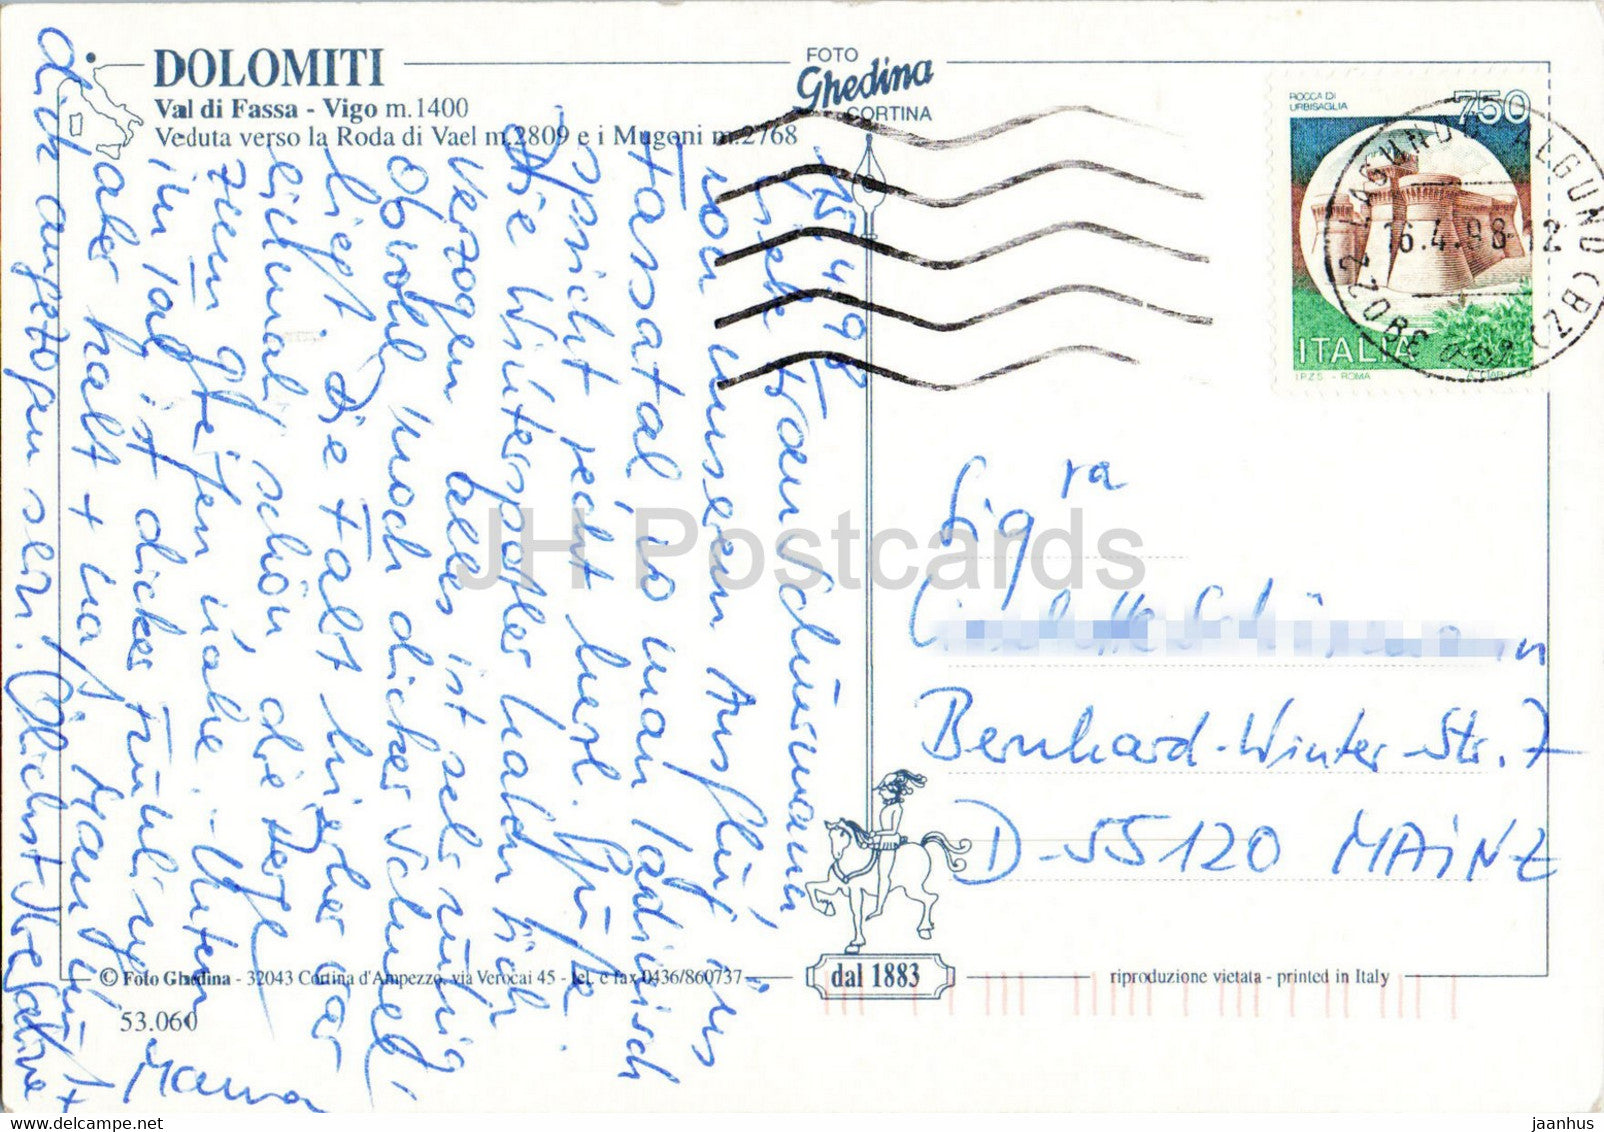 DOLOMITI
Val di Fassa - Vigo m.1400
Veduta verso la Roda di Vael m.2809 e i Mugoni m.2768
FOTO
Ghedina
CORTINA
ROCCA DI
URBISAGLIA
750
ITALIA
I.P.Z.S. - ROMA
LAGUNDO ALGUND (BZ)
16.4.98-12
15.4.98
Liebe Frau Schürmann
von unserem Ausflug ins
Fassatal, wo man ladinisch
spricht recht herzl. Grüße
Die Wintersportler haben sich
verzogen alles ist sehr ruhig
obwohl noch dicker Schnee
liegt. Die Fahrt hierher war
einmal schön die Berge
zum greifen nahe. Unten
im Tal ist dickes Frühling
aber kalt +
dich angezogen sein.
Mama
Sig ra
Bernhard-Winter-Str. 7
D-55120 MAINZ
JH Postcards
© Foto Ghedina - 32043 Cortina d'Ampezzo, via Verocai 45 - tel. e fax 0436/860737
dal 1883
riproduzione vietata - printed in Italy
53.060
jaanhus